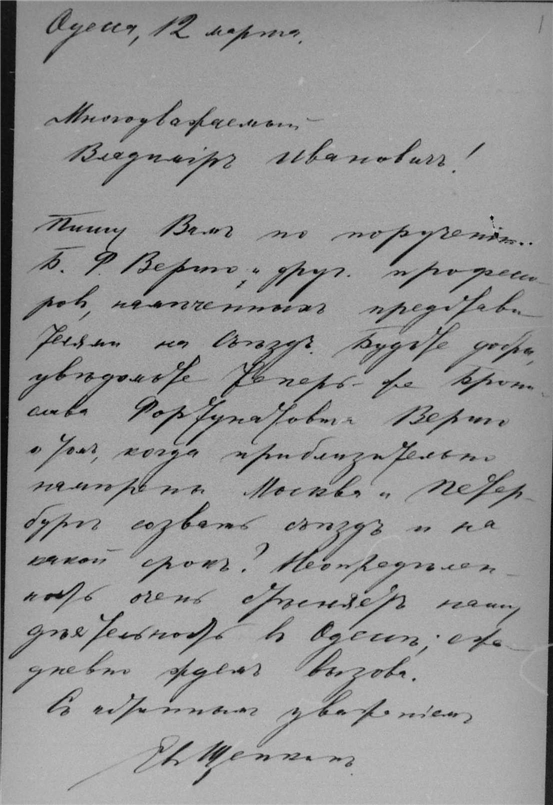 Одесса, 12 марта.
Многоуважаемый
Владиміръ Ивановичъ!
Пишу Вамъ по порученію
Б. Ф. Вериго и друг. профессо-
ровъ, намѣченныхъ представи-
телями на Съѣздъ. Будьте добры,
увѣдомьте теперь-же Брони-
слава Фортунатовича Вериго
о томъ, когда приблизительно
намѣрены Москва и Петер-
бургъ созвать съѣздъ и на
какой срокъ? Неопредѣлен-
ность очень стѣсняетъ нашу
дѣятельность въ Одессѣ; еже-
дневно ждемъ вызова.
Съ истиннымъ уваженіемъ
Евг Щепкинъ